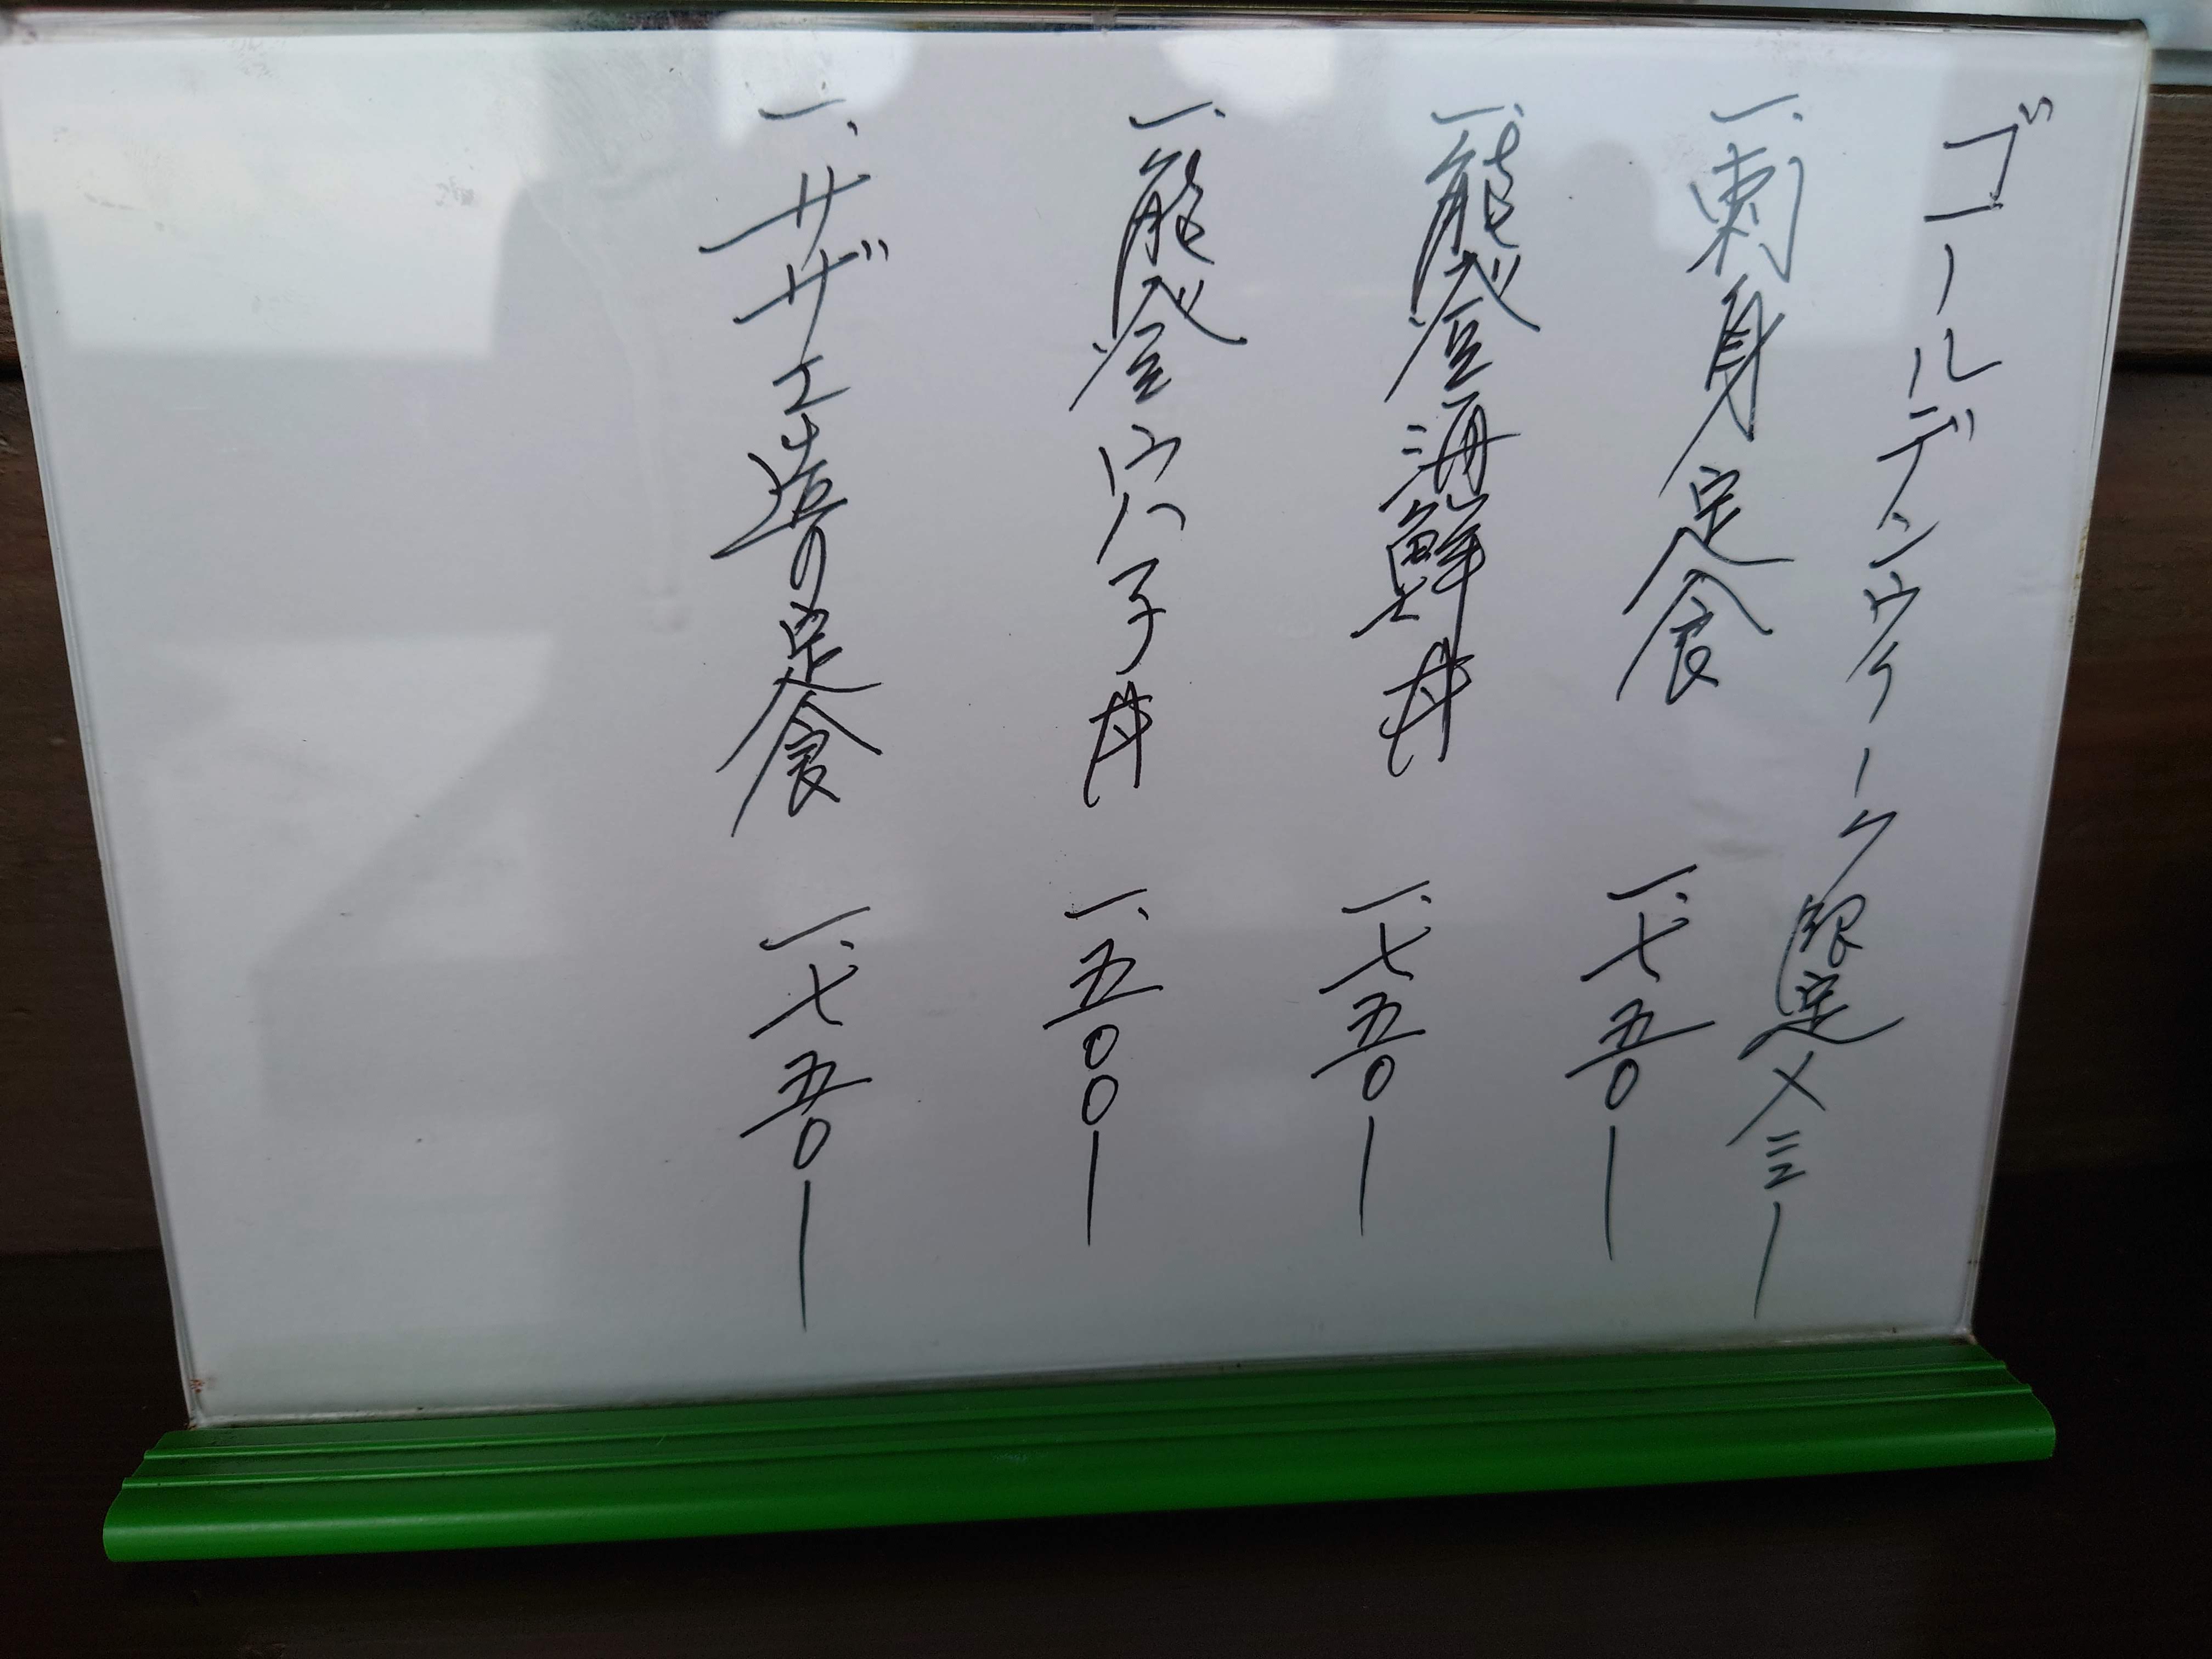 ゴールデンウィーク限定メニュー
一、刺身定食 一、七五〇ー
一、能登海鮮丼 一、七五〇ー
一、能登穴子丼 一、五〇〇ー
一、サザエ造り定食 一、七五〇ー